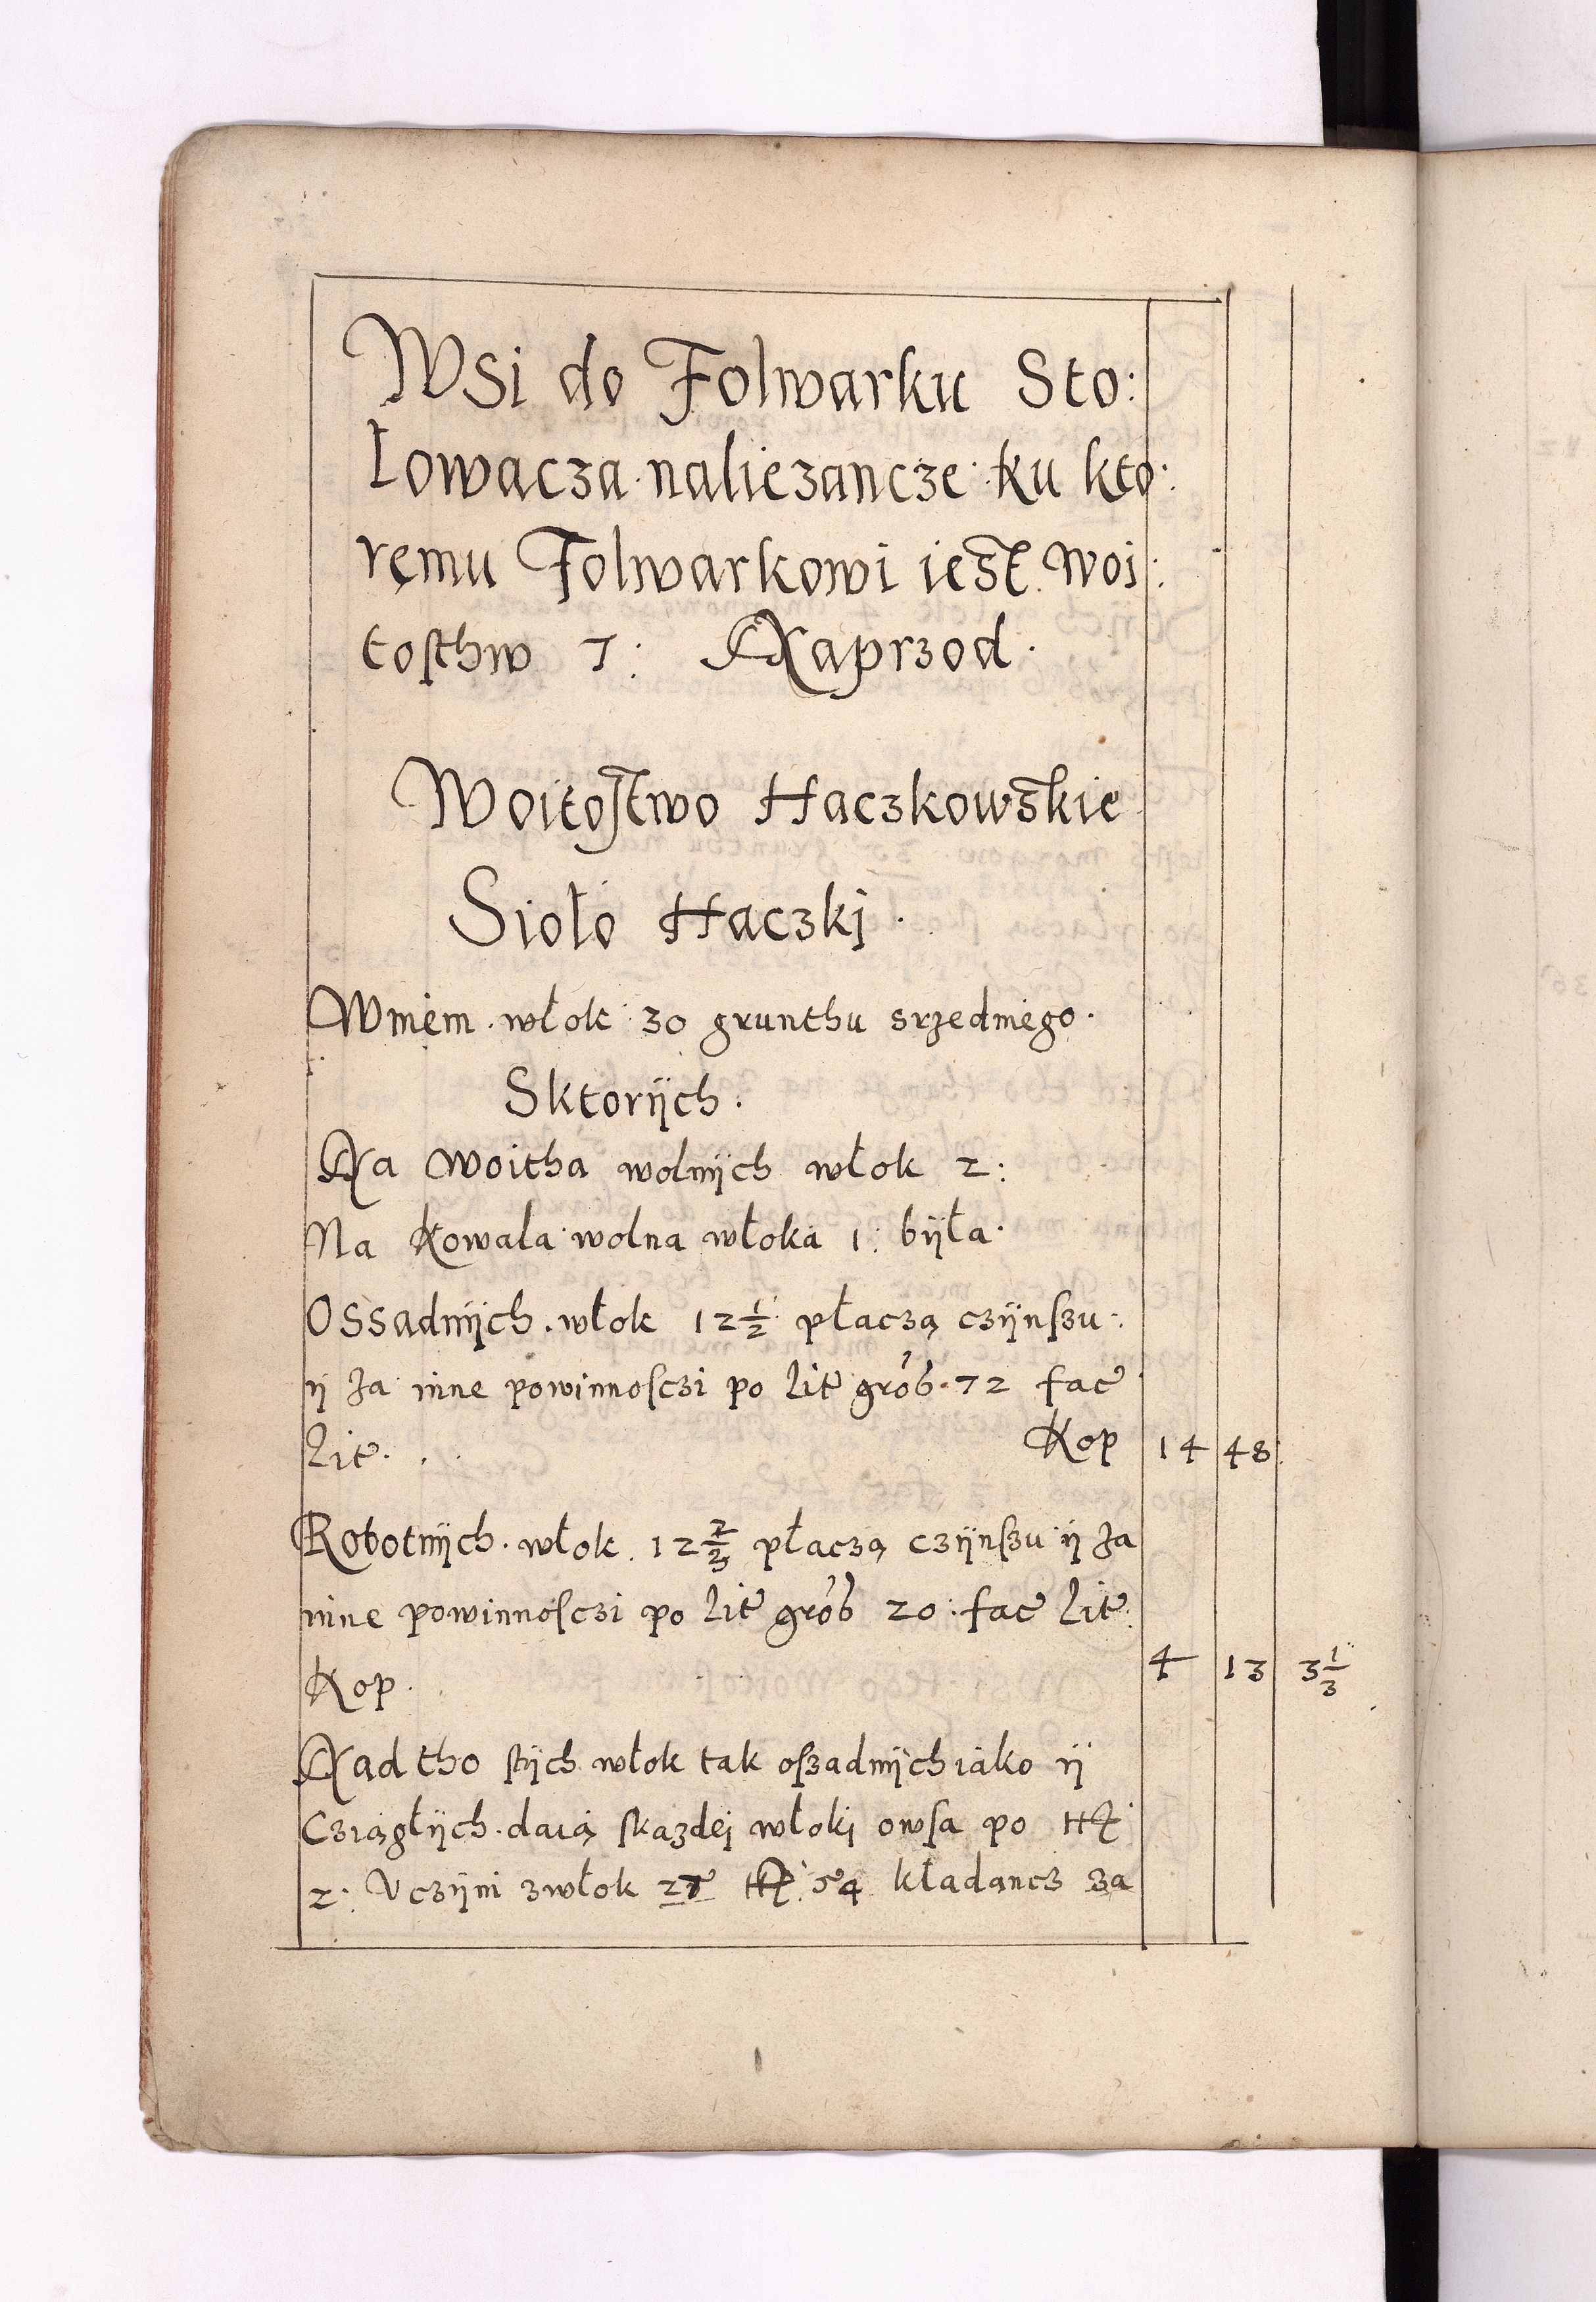 Wsi do Folwarku Sto:
łowacza naliezancze ku kto:
remu Folwarkowi iest Woi:
tosthw 7: Naprzod.
Woitostwo Haczkowskie
Sioło Haczki.
Wniem włok 30 grunthu srzedniego.
Sktorÿch.
Na Woitha wolnÿch włok 2:
Na Kowala wolna włoka 1: bÿła.
Ossadnÿch włok 12 1/2 płaczą czÿnszu
ÿ za inne powinnosczi po lit grob 72 fac
lit. Kop 14 48
Robotnÿch włok 12 2/3 płaczą czÿnszu ÿ za
inne powinnosczi po lit grob 20 fac lit
Kop. 4 13 3 1/3
Nad tho stÿch włok tak oszadnÿch iako ÿ
Cziągłÿch daią skazdei włoki owsa po
2: Vczÿni zwłok 27 54 kładancz za